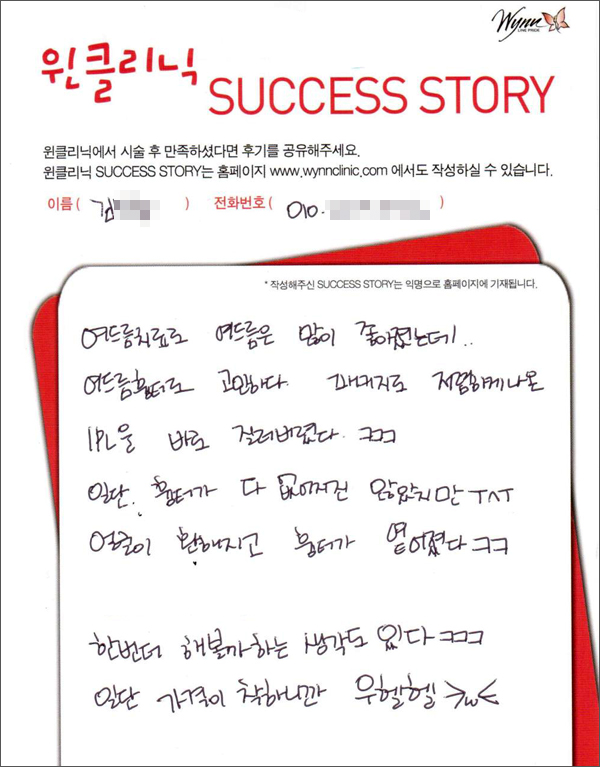 Wynn
LINE PRIDE
윈클리닉
SUCCESS STORY
윈클리닉에서 시술 후 만족하셨다면 후기를 공유해주세요.
윈클리닉 SUCCESS STORY는 홈페이지 www.wynnclinic.com 에서도 작성하실 수 있습니다.
이름 ( 김 ) 전화번호 ( 010. )
* 작성해주신 SUCCESS STORY는 익명으로 홈페이지에 기재됩니다.
여드름치료로 여드름은 많이 좋아졌는데..
여드름흉터로 고민하다. 패키지로 저렴하게나온
IPL을 바로 질러버렸다. ㅋㅋㅋ
일단. 흉터가 다 없어지진 않았지만 ㅜㅅㅜ
얼굴이 환해지고 흉터가 옅어졌다 ㅋㅋ
한번더 해볼까하는 생각도 있다 ㅋㅋㅋ
일단 가격이 착하니까 우헬헬 >w<